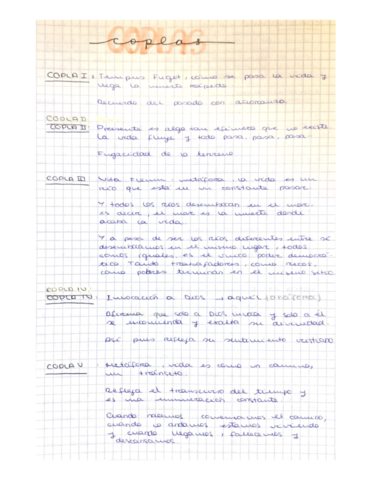 COPLAS
coplas
COPLA I: Tempus Fuget, cómo se pasa la vida y
llega la muerte
Recuerdo del pasado con añoranza
COPLA II
COPLA II: Presente es algo tan efímero que no existe
La vida fluye y todo pasa, pasa, pasa.
Fugacidad de lo terreno
COPLA III: Vita Flumen, metáfora, la vida es un
río que está en un constante pasar.
Y todos los ríos desembocan en el mar
es decir, el mar es la muerte donde
acaba la vida.
Y a pesar de ser los ríos diferentes entre sí
desembocamos en el mismo lugar, todos
somos iguales, es el único poder democrá-
tico. Tanto trabajadores, como ricos,
como pobres terminan en el mismo sitio.
COPLA IV:
COPLA IV: Invocación a Dios → aquel (anáfora)
Afirma que solo a Dios invoca y solo a él
se encomienda y exalta su divinidad.
Así pues refleja su sentimiento cristiano
COPLA V Metáfora, vida es como un camino,
un tránsito.
Refleja el transcurso del tiempo y
es una constante.
Cuando nacemos comenzamos el camino,
cuando lo andamos estamos viviendo
y cuando llegamos, fallecemos y
descansamos.